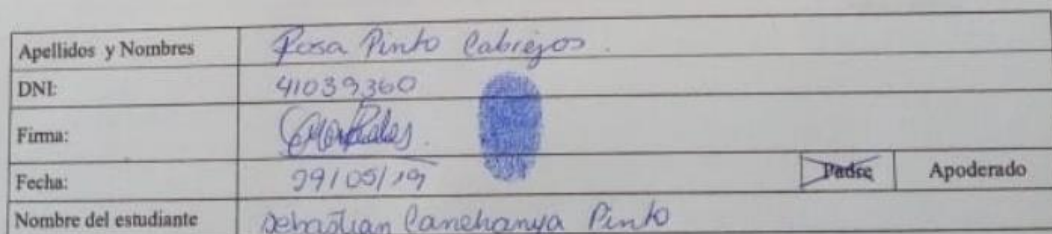 Apellidos y Nombres Rosa Pinto Cabrejos.
DNI: 41039360
Firma:
Fecha: 29/05/19 Padre Apoderado
Nombre del estudiante Sebastian Canchanya Pinto